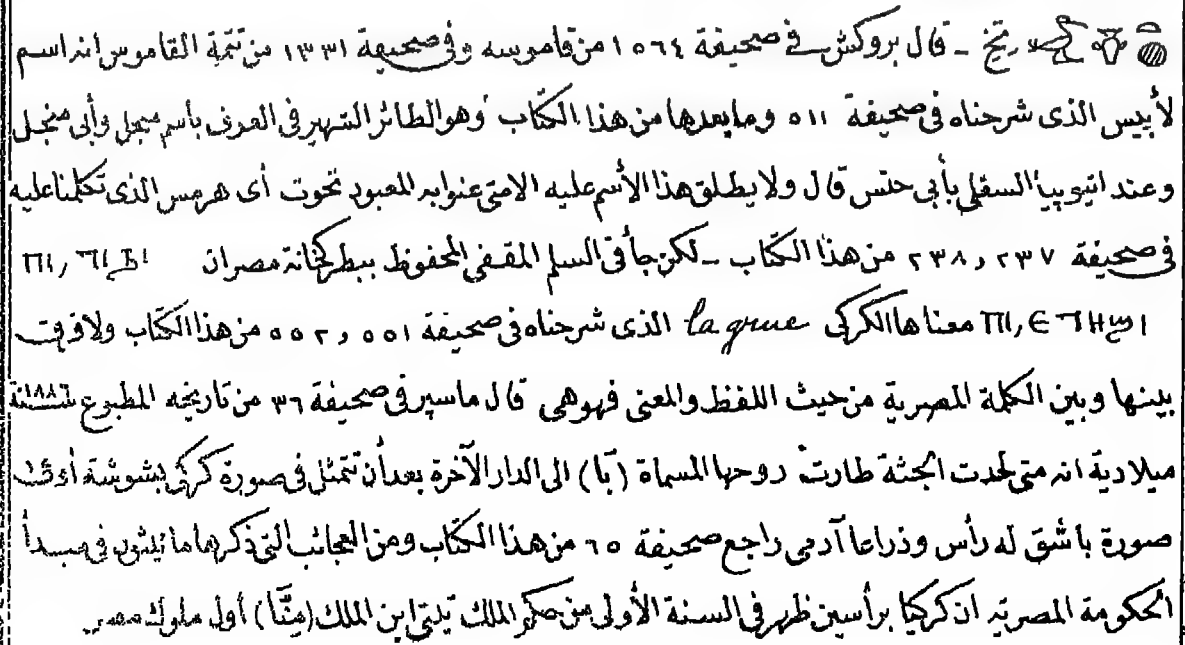 تخ - قال بروكش في صحيفة ١٥٦٤ من قاموسه وفى صحيفة ١٣٣١ من تتمة القاموس انه اسم
لأبيس الذى شرحناه فى صحيفة ٥١١ ومابعدها من هذا الكتاب وهو الطائر الشهير فى العرف بأسم منجل وأبى منجل
وعند اتيوبيا السفلى بأبى حنس قال ولا يطلق هذا الأسم عليه الا متى عنوا به المعبود تحوت أى هرمس الذى تكلمنا عليه
فى صحيفة ٢٣٧ و ٢٣٨ من هذا الكتاب - لكن جأ فى السلم المقفى المحفوظ ببطركخانة مصر ان
معناها الكركى la grue الذى شرحناه فى صحيفة ٥٥١ و ٥٥٢ من هذا الكتاب ولا فرق
بينها وبين الكلمة المصرية من حيث اللفظ والمعنى فهو هى قال ماسپر فى صحيفة ٣٦ من تاريخه المطبوع سنة
ميلادية انه متى لحدت الجثة طارت روحها المسماة (بَا) الى الدار الآخرة بعد أن تتمثل فى صورة كركى بشوشة أو فى
صورة باشق له رأس وذراعا آدمى راجع صحيفة ٦٥ من هذا الكتاب ومن العجائب التى ذكرها مانيثون فى مبدأ
الحكومة المصرية ان كركيا برأسين ظهر فى السنة الأولى من حكم الملك تيتى ابن الملك (مِنَّا) أول ملوك مصر